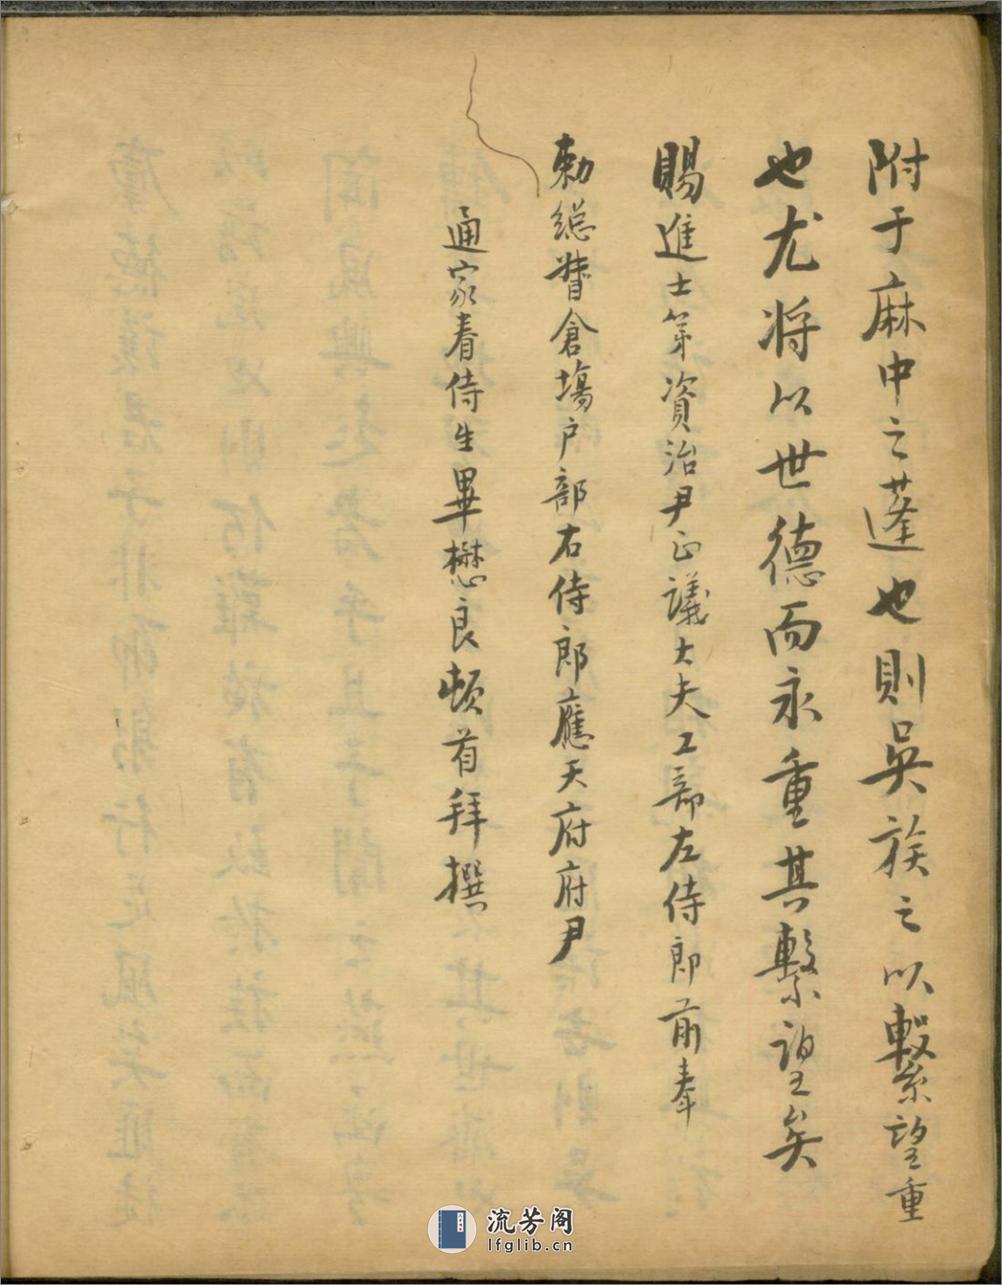 附于麻中之蓬也則吳族之以繫望重
也尤將以世德而永重其繫望矣
賜進士第資治尹正議大夫工部左侍郎前奉
勅總督倉塲户部右侍郎應天府府尹
通家眷侍生畢懋良頓首拜撰
流芳阁
lfglib.cn